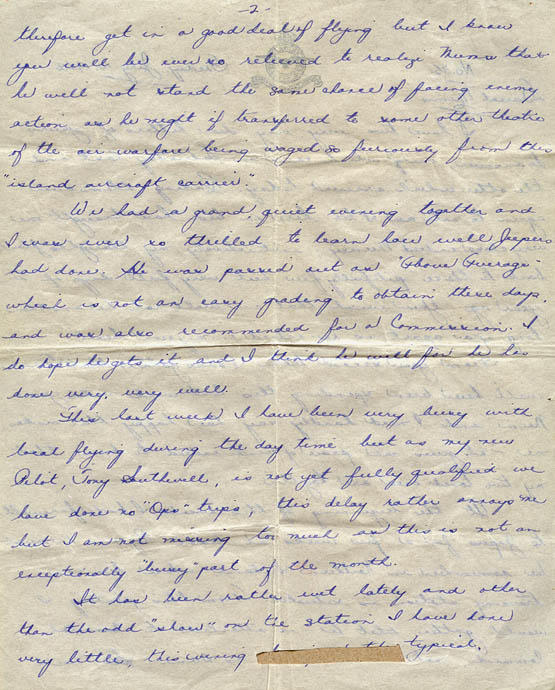 -2-
therefore get in a good deal of flying but I know
you will be ever so relieved to realize Mums that
he will not stand the same chance of facing enemy
action as he might if transferred to some other theatre
of the air warfare being waged so furiously from this
"island aircraft carrier."
We had a grand, quiet evening together and
I was ever so thrilled to learn how well Jeepers
had done. He was passed out as "Above Average"
which is not an easy grading to obtain these days,
and was also recommended for a Commission. I
do hope he gets it and I think he will for he has
done very, very well.
This last week I have been very busy with
local flying during the day time but as my new
Pilot, Tony Southwell, is not yet fully qualified we
have done no "Ops" trips, this delay rather annoys me
but I am not missing too much as this is not an
exceptionally "busy" part of the month.
It has been rather wet lately and other
than the odd "show" on the station I have done
very little, this evening typical,